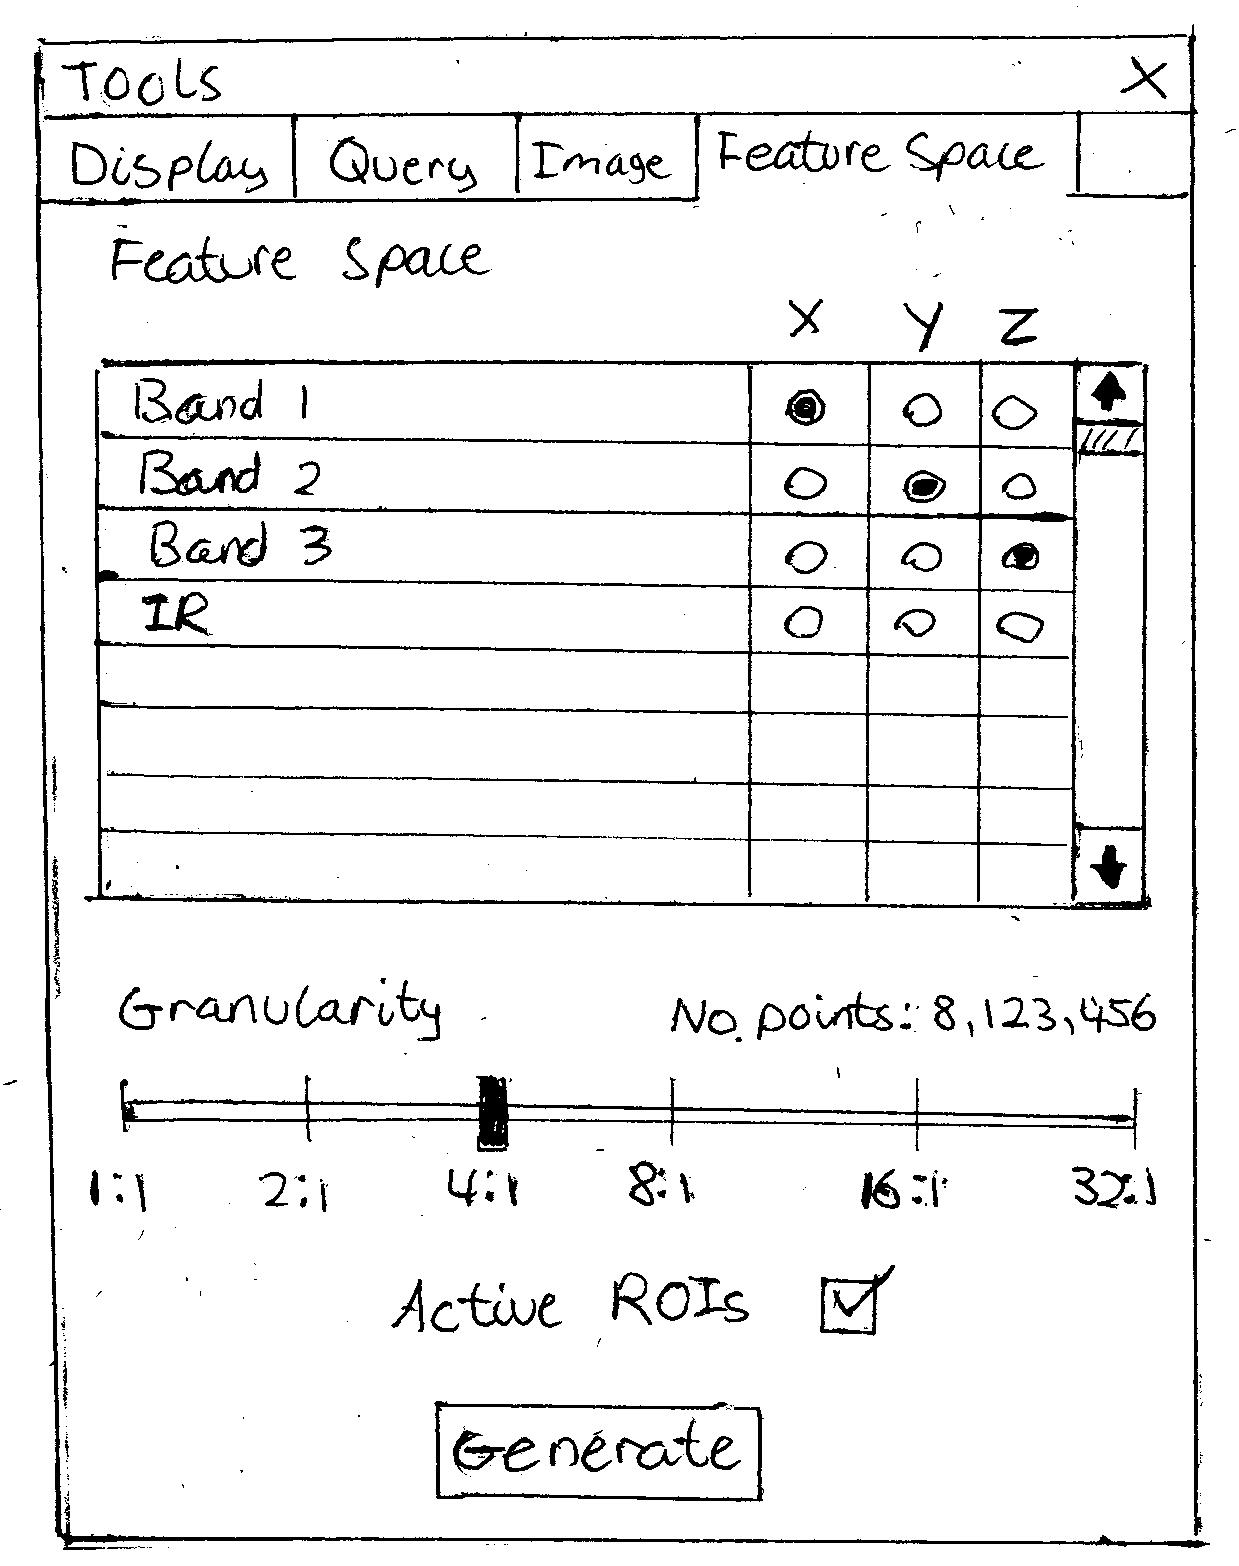 Tools X
Display Query Image Feature Space
Feature Space
X Y Z
Band 1
Band 2
Band 3
IR
Granularity No. points: 8,123,456
1:1 2:1 4:1 8:1 16:1 32:1
Active ROIs
Generate